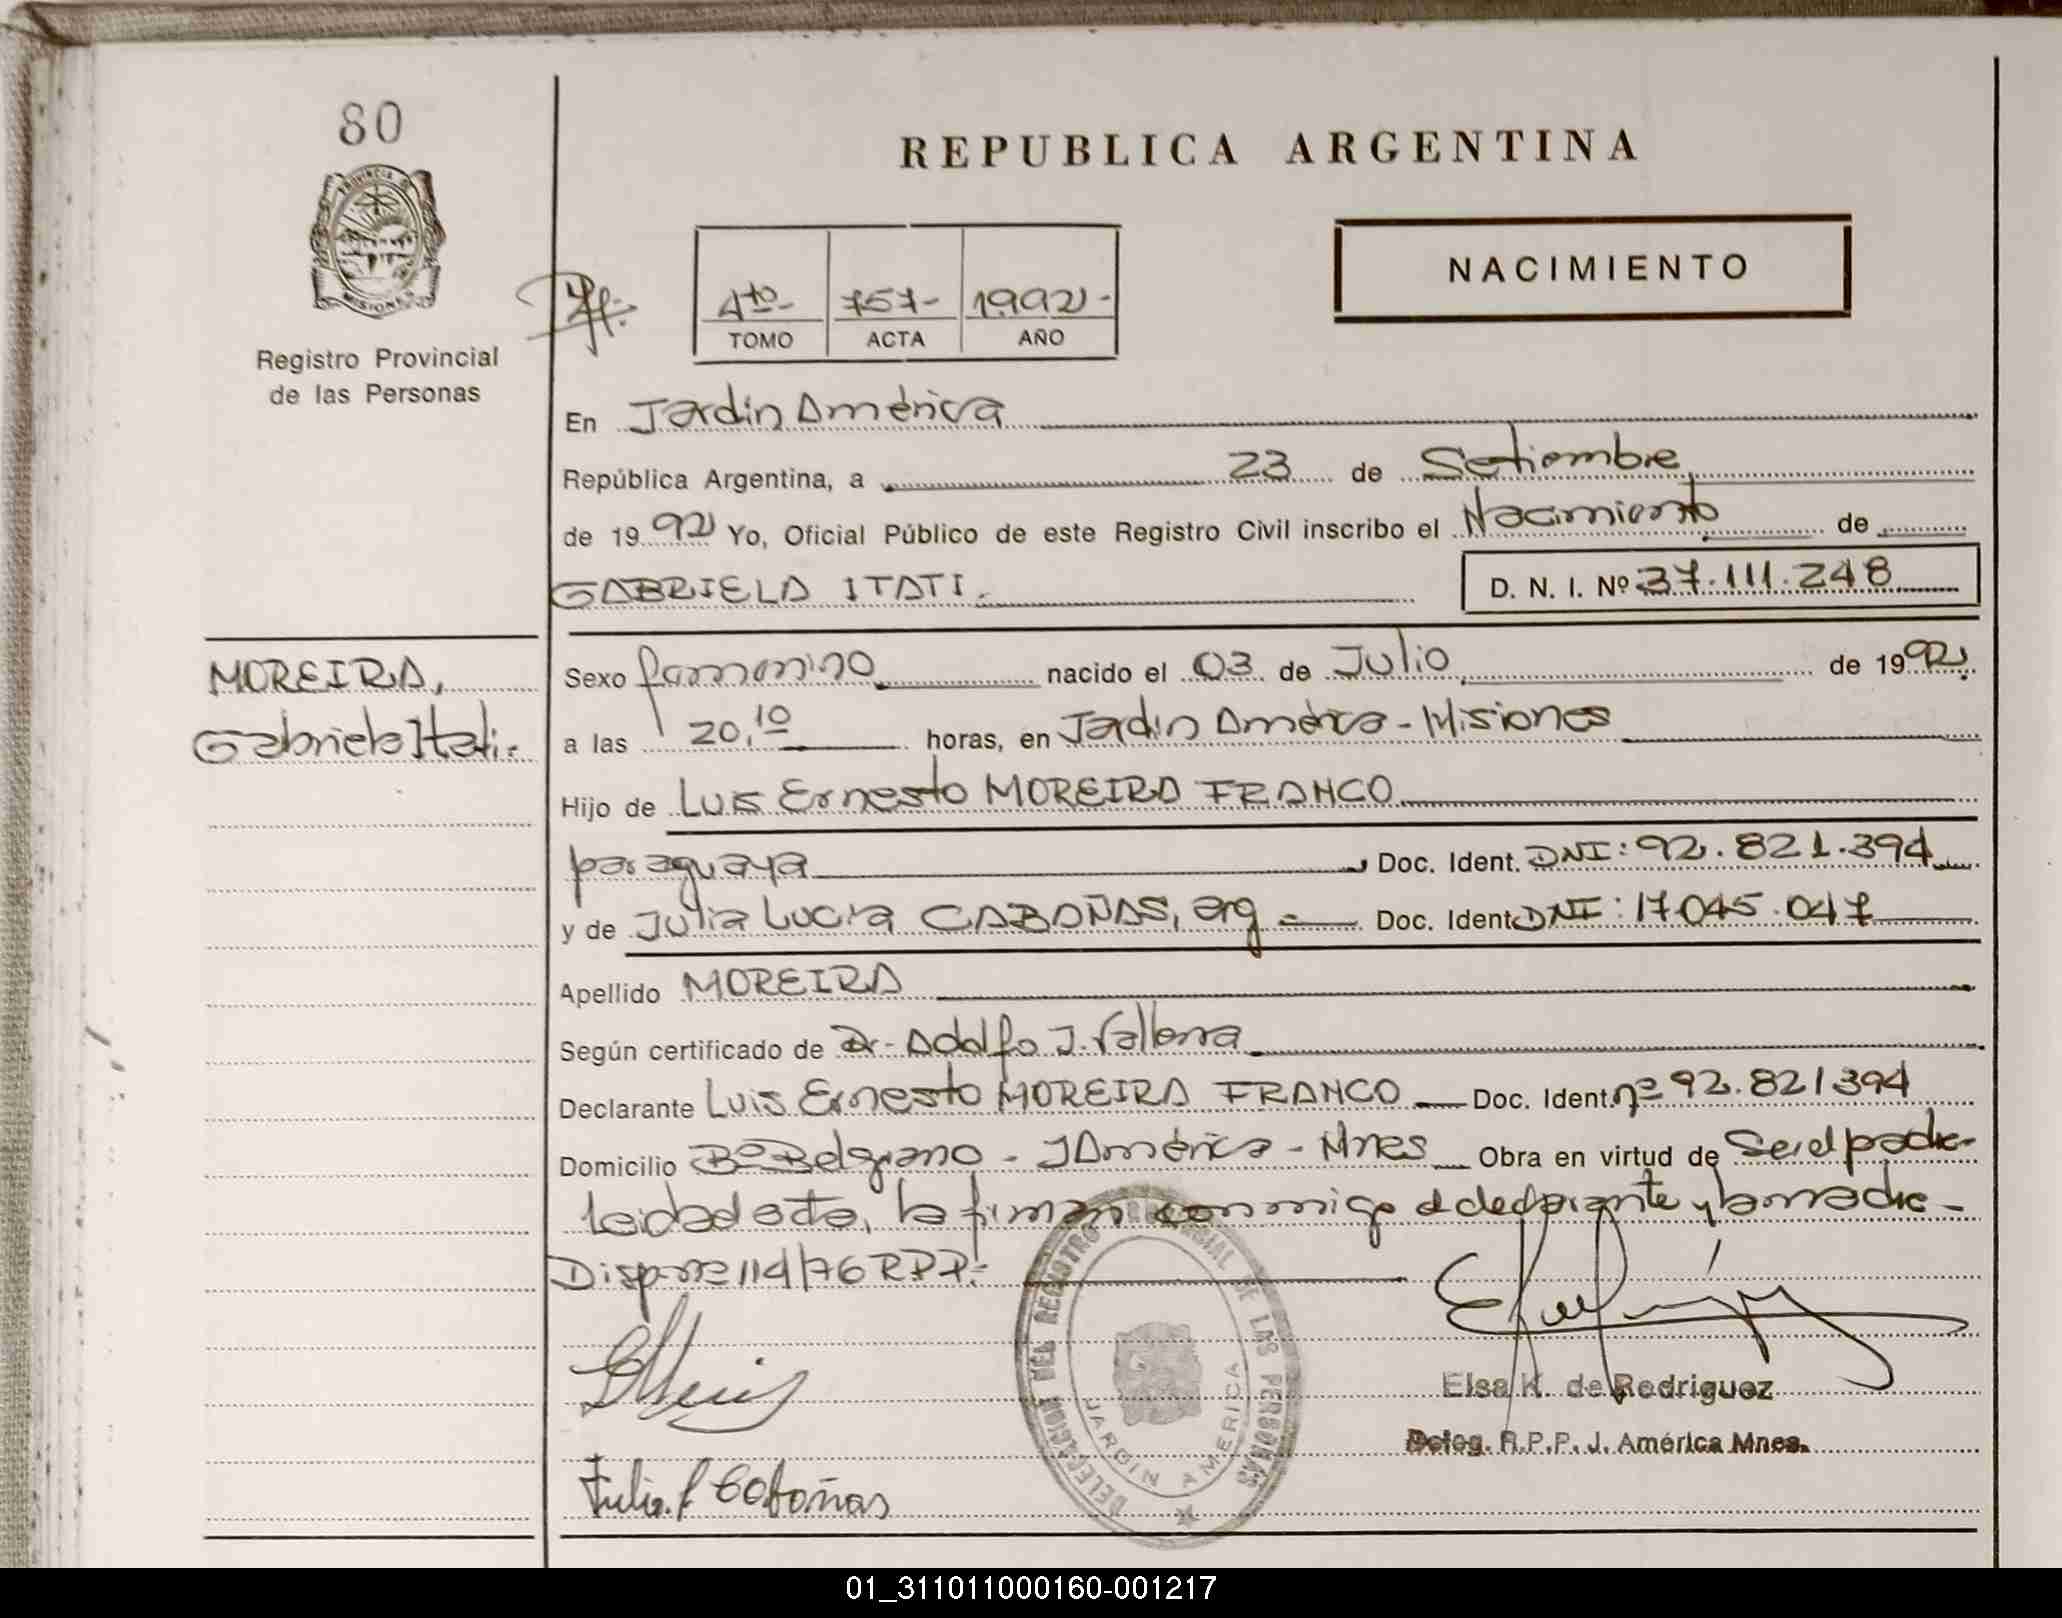 80
PROVINCIA DE
MISIONES
Registro Provincial
de las Personas
REPUBLICA ARGENTINA
NACIMIENTO
4to- 757- 1.992-
TOMO ACTA AÑO
En Jardin América
República Argentina, a 23 de Setiembre
de 1992 Yo, Oficial Público de este Registro Civil inscribo el Nacimiento de
GABRIELA ITATI. D. N. I. Nº 37.111.248
MOREIRA,
Gabriela Itati.-
Sexo femenino nacido el 03 de Julio de 1992.
a las 20,10 horas, en Jardin América - Misiones
Hijo de Luis Ernesto MOREIRA FRANCO
paraguaya Doc. Ident. DNI: 92.821.394
y de Julia Lucia CABAÑAS, arg.- Doc. Ident. DNI: 17.045.047
Apellido MOREIRA
Según certificado de Dr. Adolfo J.
Declarante Luis Ernesto MOREIRA FRANCO Doc. Ident. nº 92.821394
Domicilio Bº Belgrano - J América - Mnes Obra en virtud de Ser el padre-
leida el acta, la firman conmigo el declarante y la madre-
Disp. nº 114/76 RPP.-
DELEGACION DEL REGISTRO PROVINCIAL DE LAS PERSONAS
JARDIN AMERICA
Elsa K. de Rodriguez
Deleg. R.P.P. J. América Mnes.
Julia L Cabañas
01_311011000160-001217